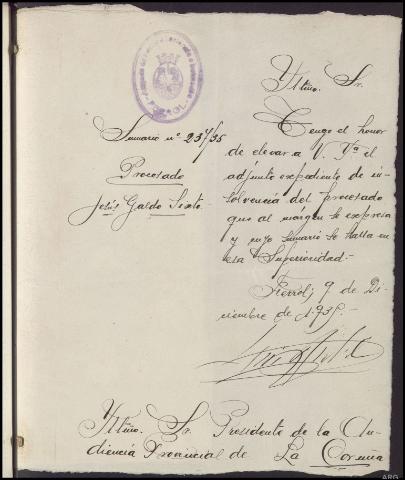 Iltmo. Sr.
Sumario nº 237/35
Procesado
Jesús Galdo Sixto
Tengo el honor
de elevar a V. Yª el
adjunto expediente de in-
solvencia del procesado
que al márgen se expresa
y cuyo sumario se halla en
esa Superioridad.-
Ferrol, 9 de Di-
ciembre de 1.935.-
Iltmo. Sr. Presidente de la Au-
diencia Provincial de La Coruña
ARG